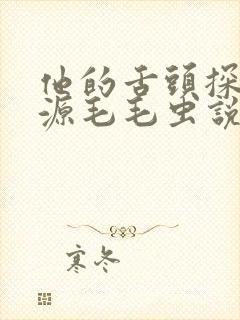 他的舌頭探
源毛毛虫説
寒冬